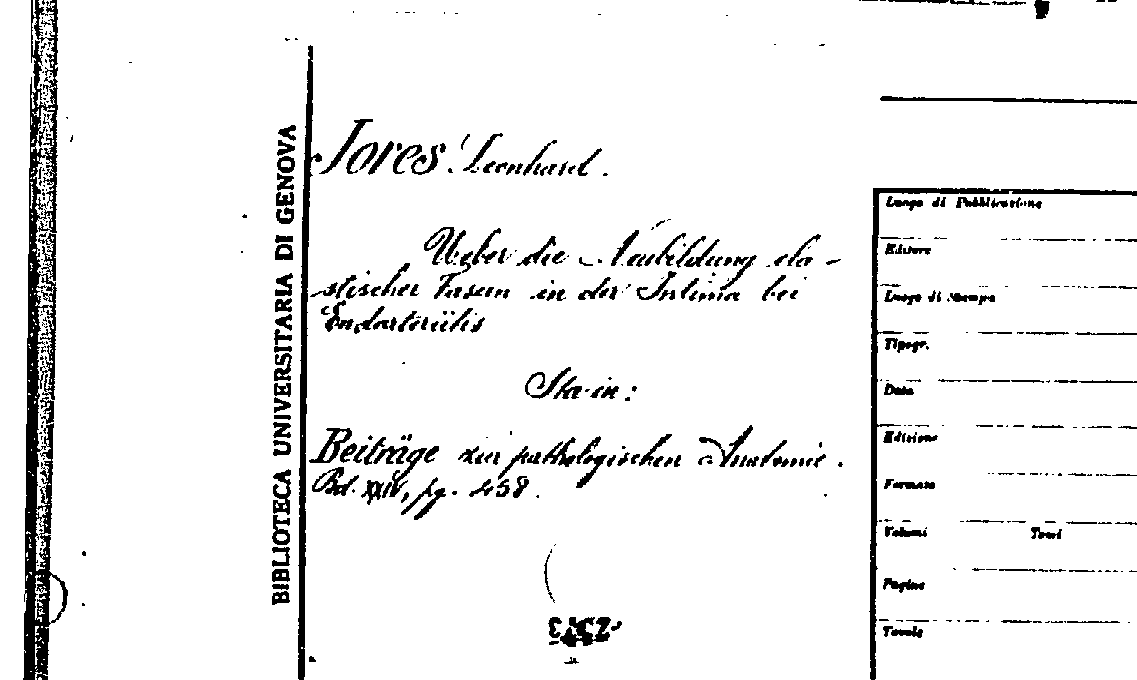 BIBLIOTECA UNIVERSITARIA DI GENOVA
Jores Leonhard.
Ueber die Neubildung ela-
stischer Fasern in der Intima bei
Endarteriitis
Sta in:
Beiträge zur pathologischen Anatomie.
Bd. XXIV, pg. 458.
Luogo di Pubblicazione
Editore
Luogo di Stampa
Tipogr.
Data
Edizione
Formato
Volumi Tomi
Pagine
Tavole